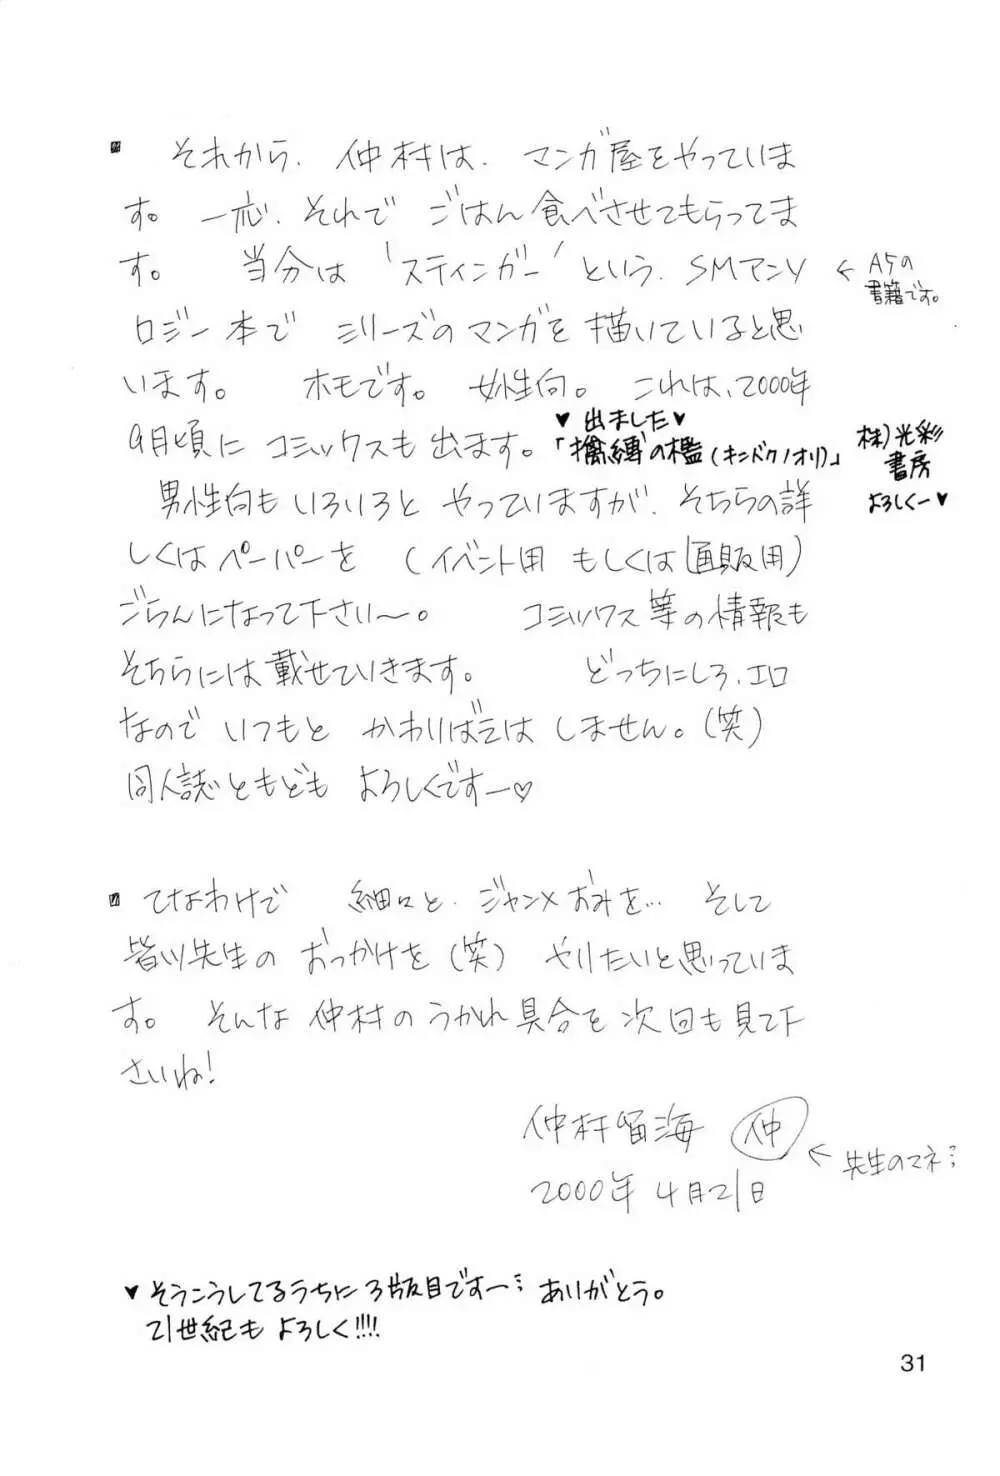 ■ それから、仲村は、マンガ屋をやっていま
す。一応、それで ごはん食べさせてもらってま
す。 当分は 'スティンガー' という、SMアンソ ← A5の
書籍です。
ロジー本で シリーズのマンガを描いていると思
います。 ホモです。 女性向。 これは、2000年
♥ 出ました♥
9月頃に コミックスも出ます。「擒縛の檻(キンバクノオリ)」 株)光彩
書房
よろしくー♥
男性向もいろいろと やっていますが、そちらの詳
しくはペーパーを (イベント用 もしくは通販用)
ごらんになって下さい〜。 コミックス等の情報も
そちらには載せていきます。 どっちにしろ、エロ
なので いつもと かわりばえは しません。(笑)
同人誌ともども よろしくですー♡
■ てなわけで 細々と、ジャン×おみを… そして
皆川先生の おっかけを(笑) やりたいと思っていま
す。 そんな 仲村の うかれ具合を 次回も見て下
さいね!
仲村留海 仲
← 先生のマネ…
2000年 4月21日
♥ そうこうしてるうちに 3版目ですー… ありがとう。
21世紀も よろしく!!!!
31